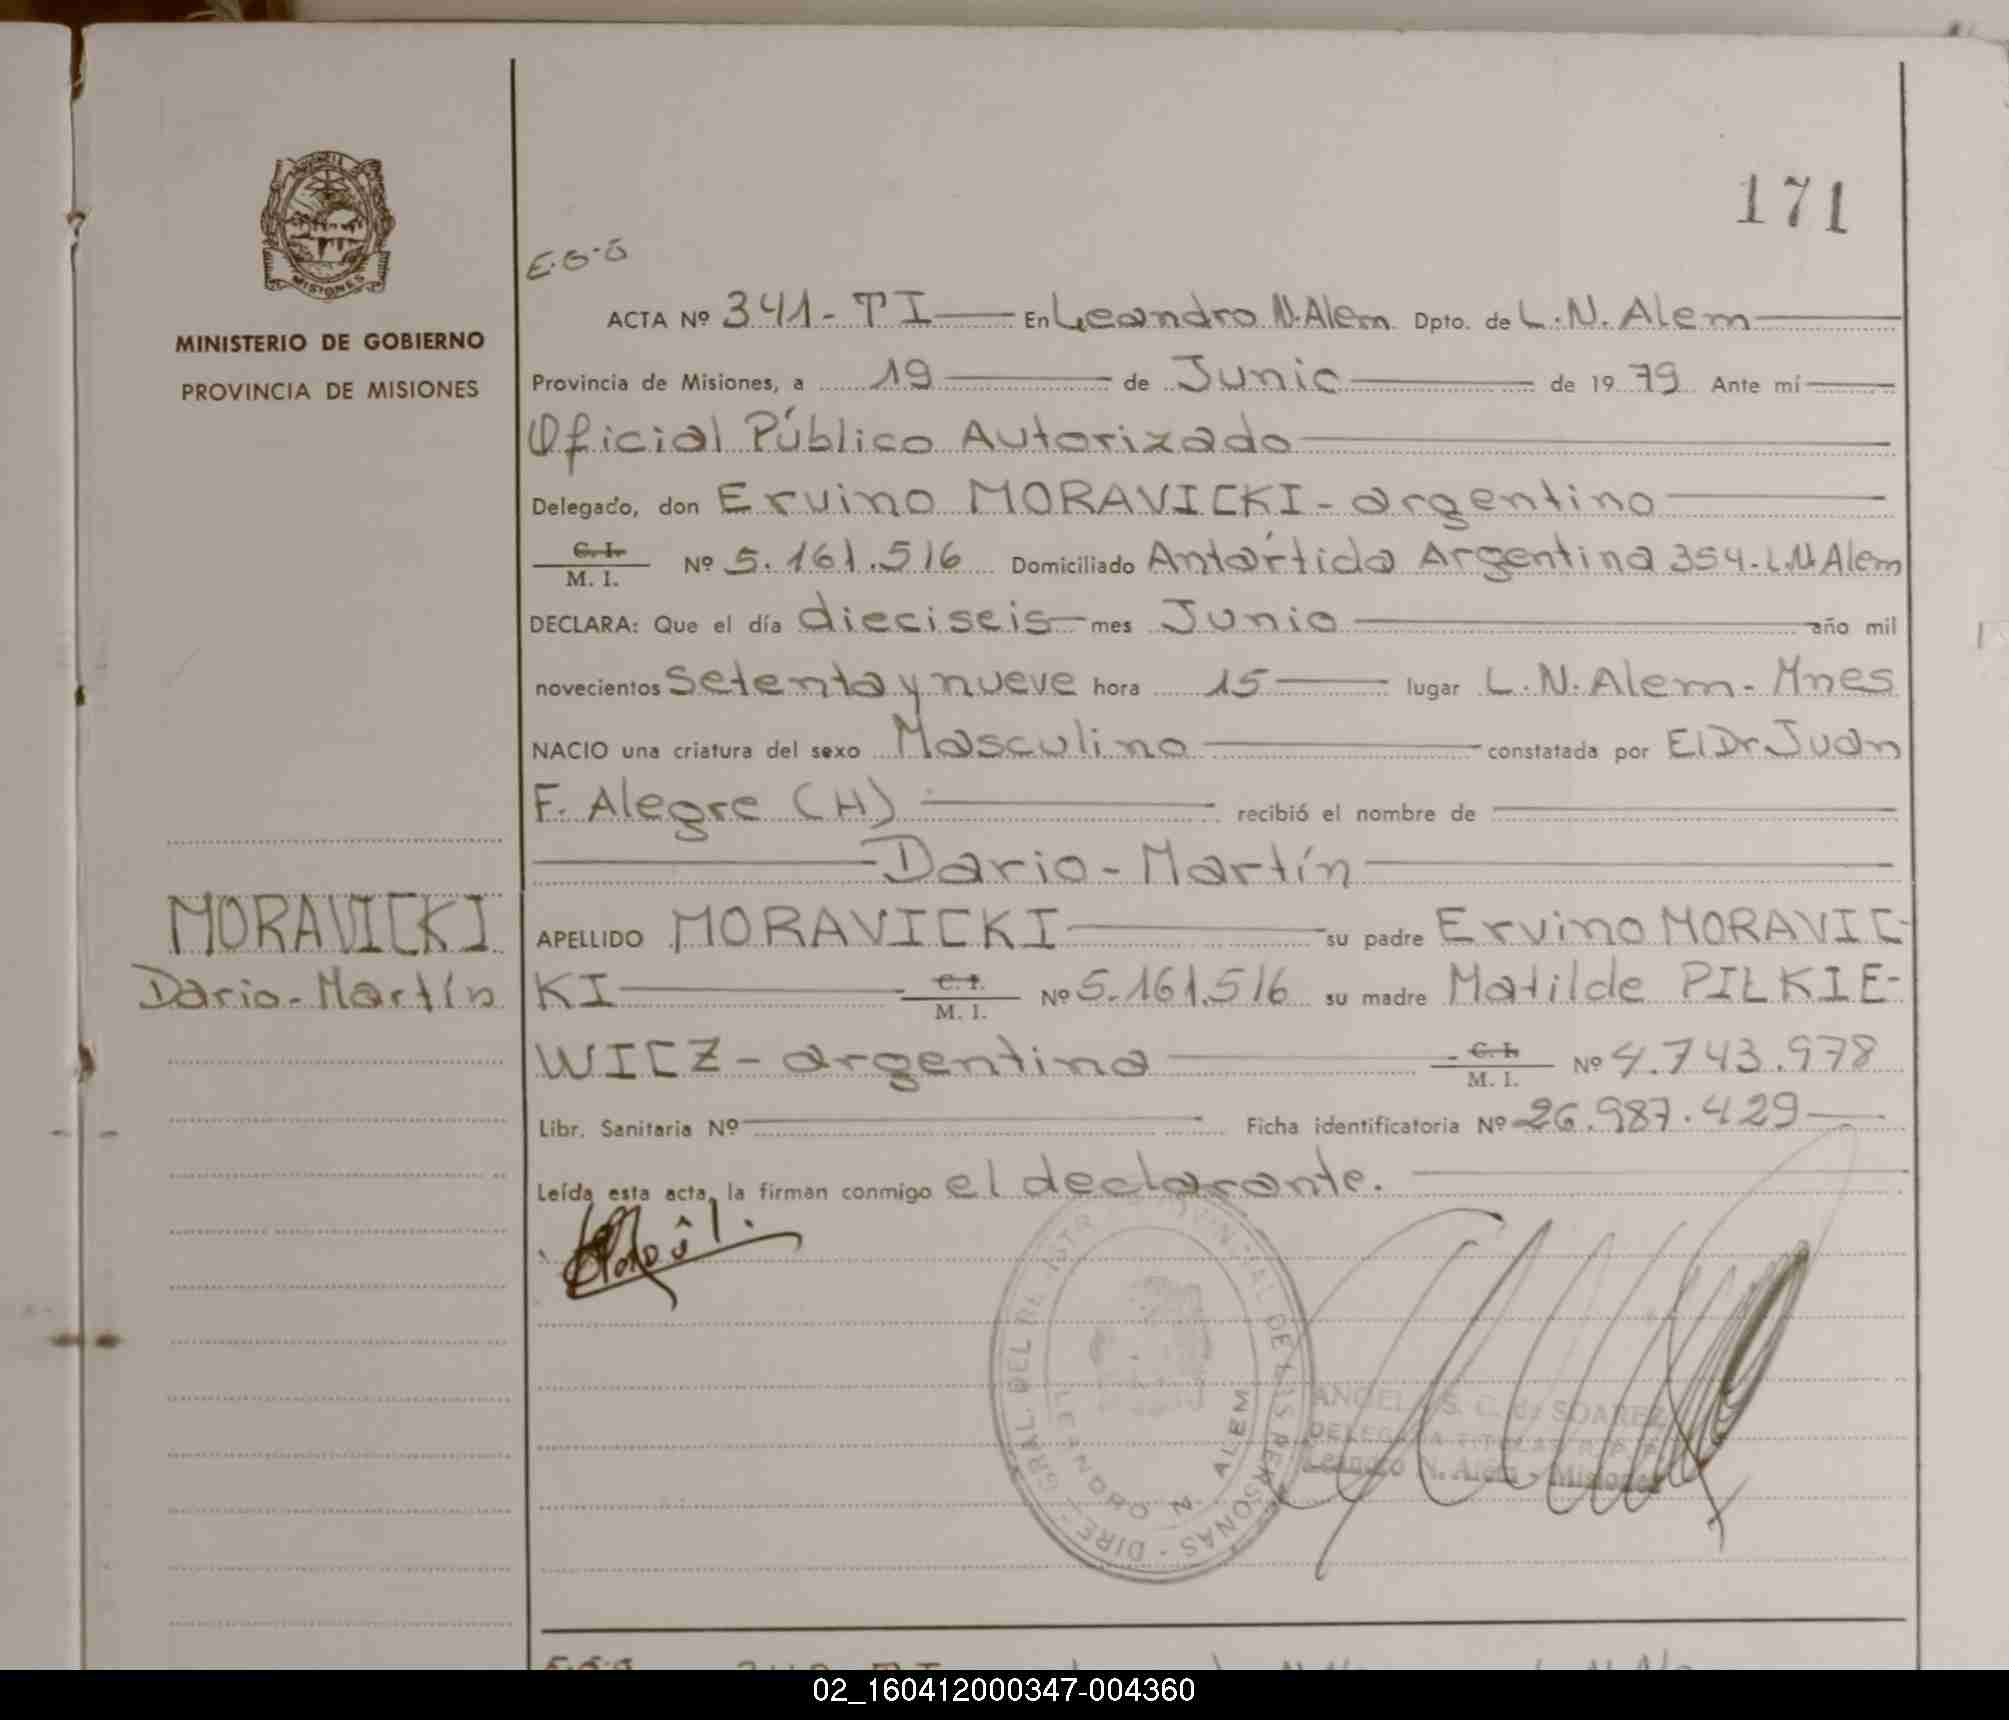 171
MINISTERIO DE GOBIERNO
PROVINCIA DE MISIONES
MISIONES
ACTA Nº 341-TI En Leandro N. Alem Dpto. de L.N. Alem
Provincia de Misiones, a 19 de Junio de 1979 Ante mí
Oficial Público Autorizado
Delegado, don Ervino MORAVICKI - argentino
C. I. M. I. Nº 5.161.516 Domiciliado Antártida Argentina 354-L.N Alem
DECLARA: Que el día dieciseis mes Junio año mil
novecientos Setenta y nueve hora 15 lugar L.N. Alem - Mnes
NACIO una criatura del sexo Masculino constatada por El Dr Juan
F. Alegre (H) recibió el nombre de
Dario-Martín
MORAVICKI
Dario-Martín
APELLIDO MORAVICKI su padre Ervino MORAVIC-
KI C. I. M. I. Nº 5.161.516 su madre Matilde PILKIE-
WICZ - argentina C. I. M. I. Nº 4.743.978
Libr. Sanitaria Nº Ficha identificatoria Nº 26.987.429
Leída esta acta, la firman conmigo el declarante.
DIREC. GRAL. DEL REGISTRO PROVINCIAL DE LAS PERSONAS
LEANDRO N. ALEM
S. C. de SOAREZ
DELEGADA TITULAR
Leandro N. Alem - Misiones
02_160412000347-004360